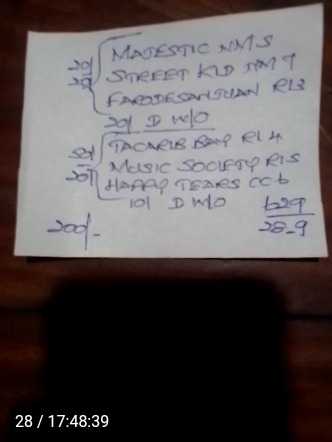 20/ MAJESTIC NMS
20 STREET KLD NM 9
FARODESANJUAN R13
20/ D W/O
50/ TACARIB BAY R14
20/ MUSIC SOCIETY R15
HAPPY TEARS CC6
10/ D W/O 629
200/- 28-9
28 / 17:48:39